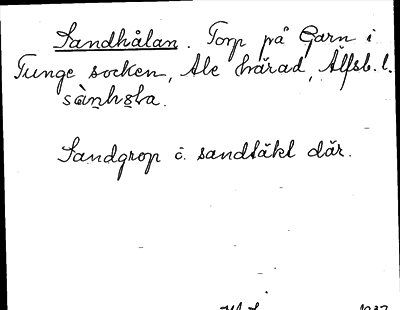 Sandhålan. Torp på Garn i
Tunge socken, Ale härad, Älfsb. l.
Sandgrop o. sandtäkt där.
1937